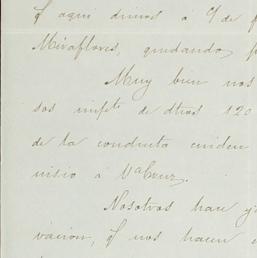 q aqui dimos á 9/ de
Miraflores, quedando
Muy bien nos
sos impte de dhos 120
de la conducta
nisio á VaCruz.
Nosotros han
vacion, q nos hacen